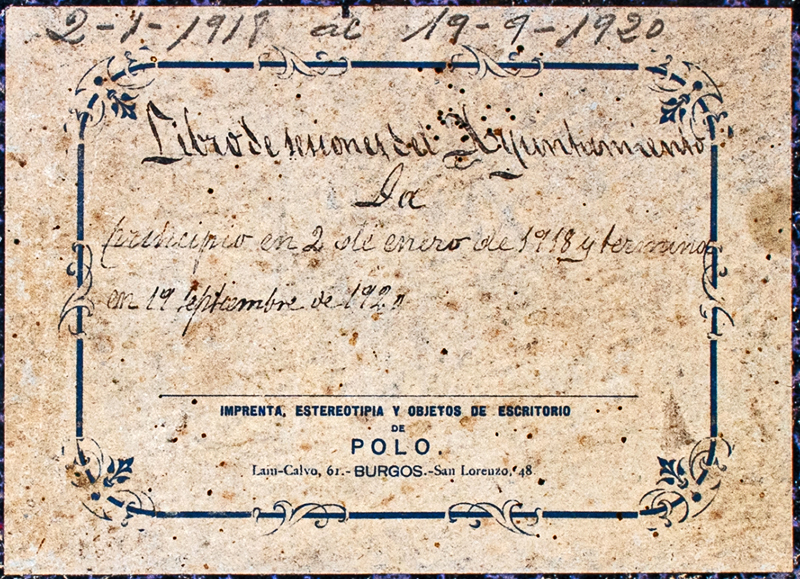 2-1-1918 al 19-9-1920
Libro de sesiones del Ayuntamiento
Da
principio en 2 de enero de 1918 y termina
en 19 septiembre de 1920
IMPRENTA, ESTEREOTIPIA Y OBJETOS DE ESCRITORIO
DE
POLO.
Lain-Calvo, 61.-BURGOS.-San Lorenzo, 48